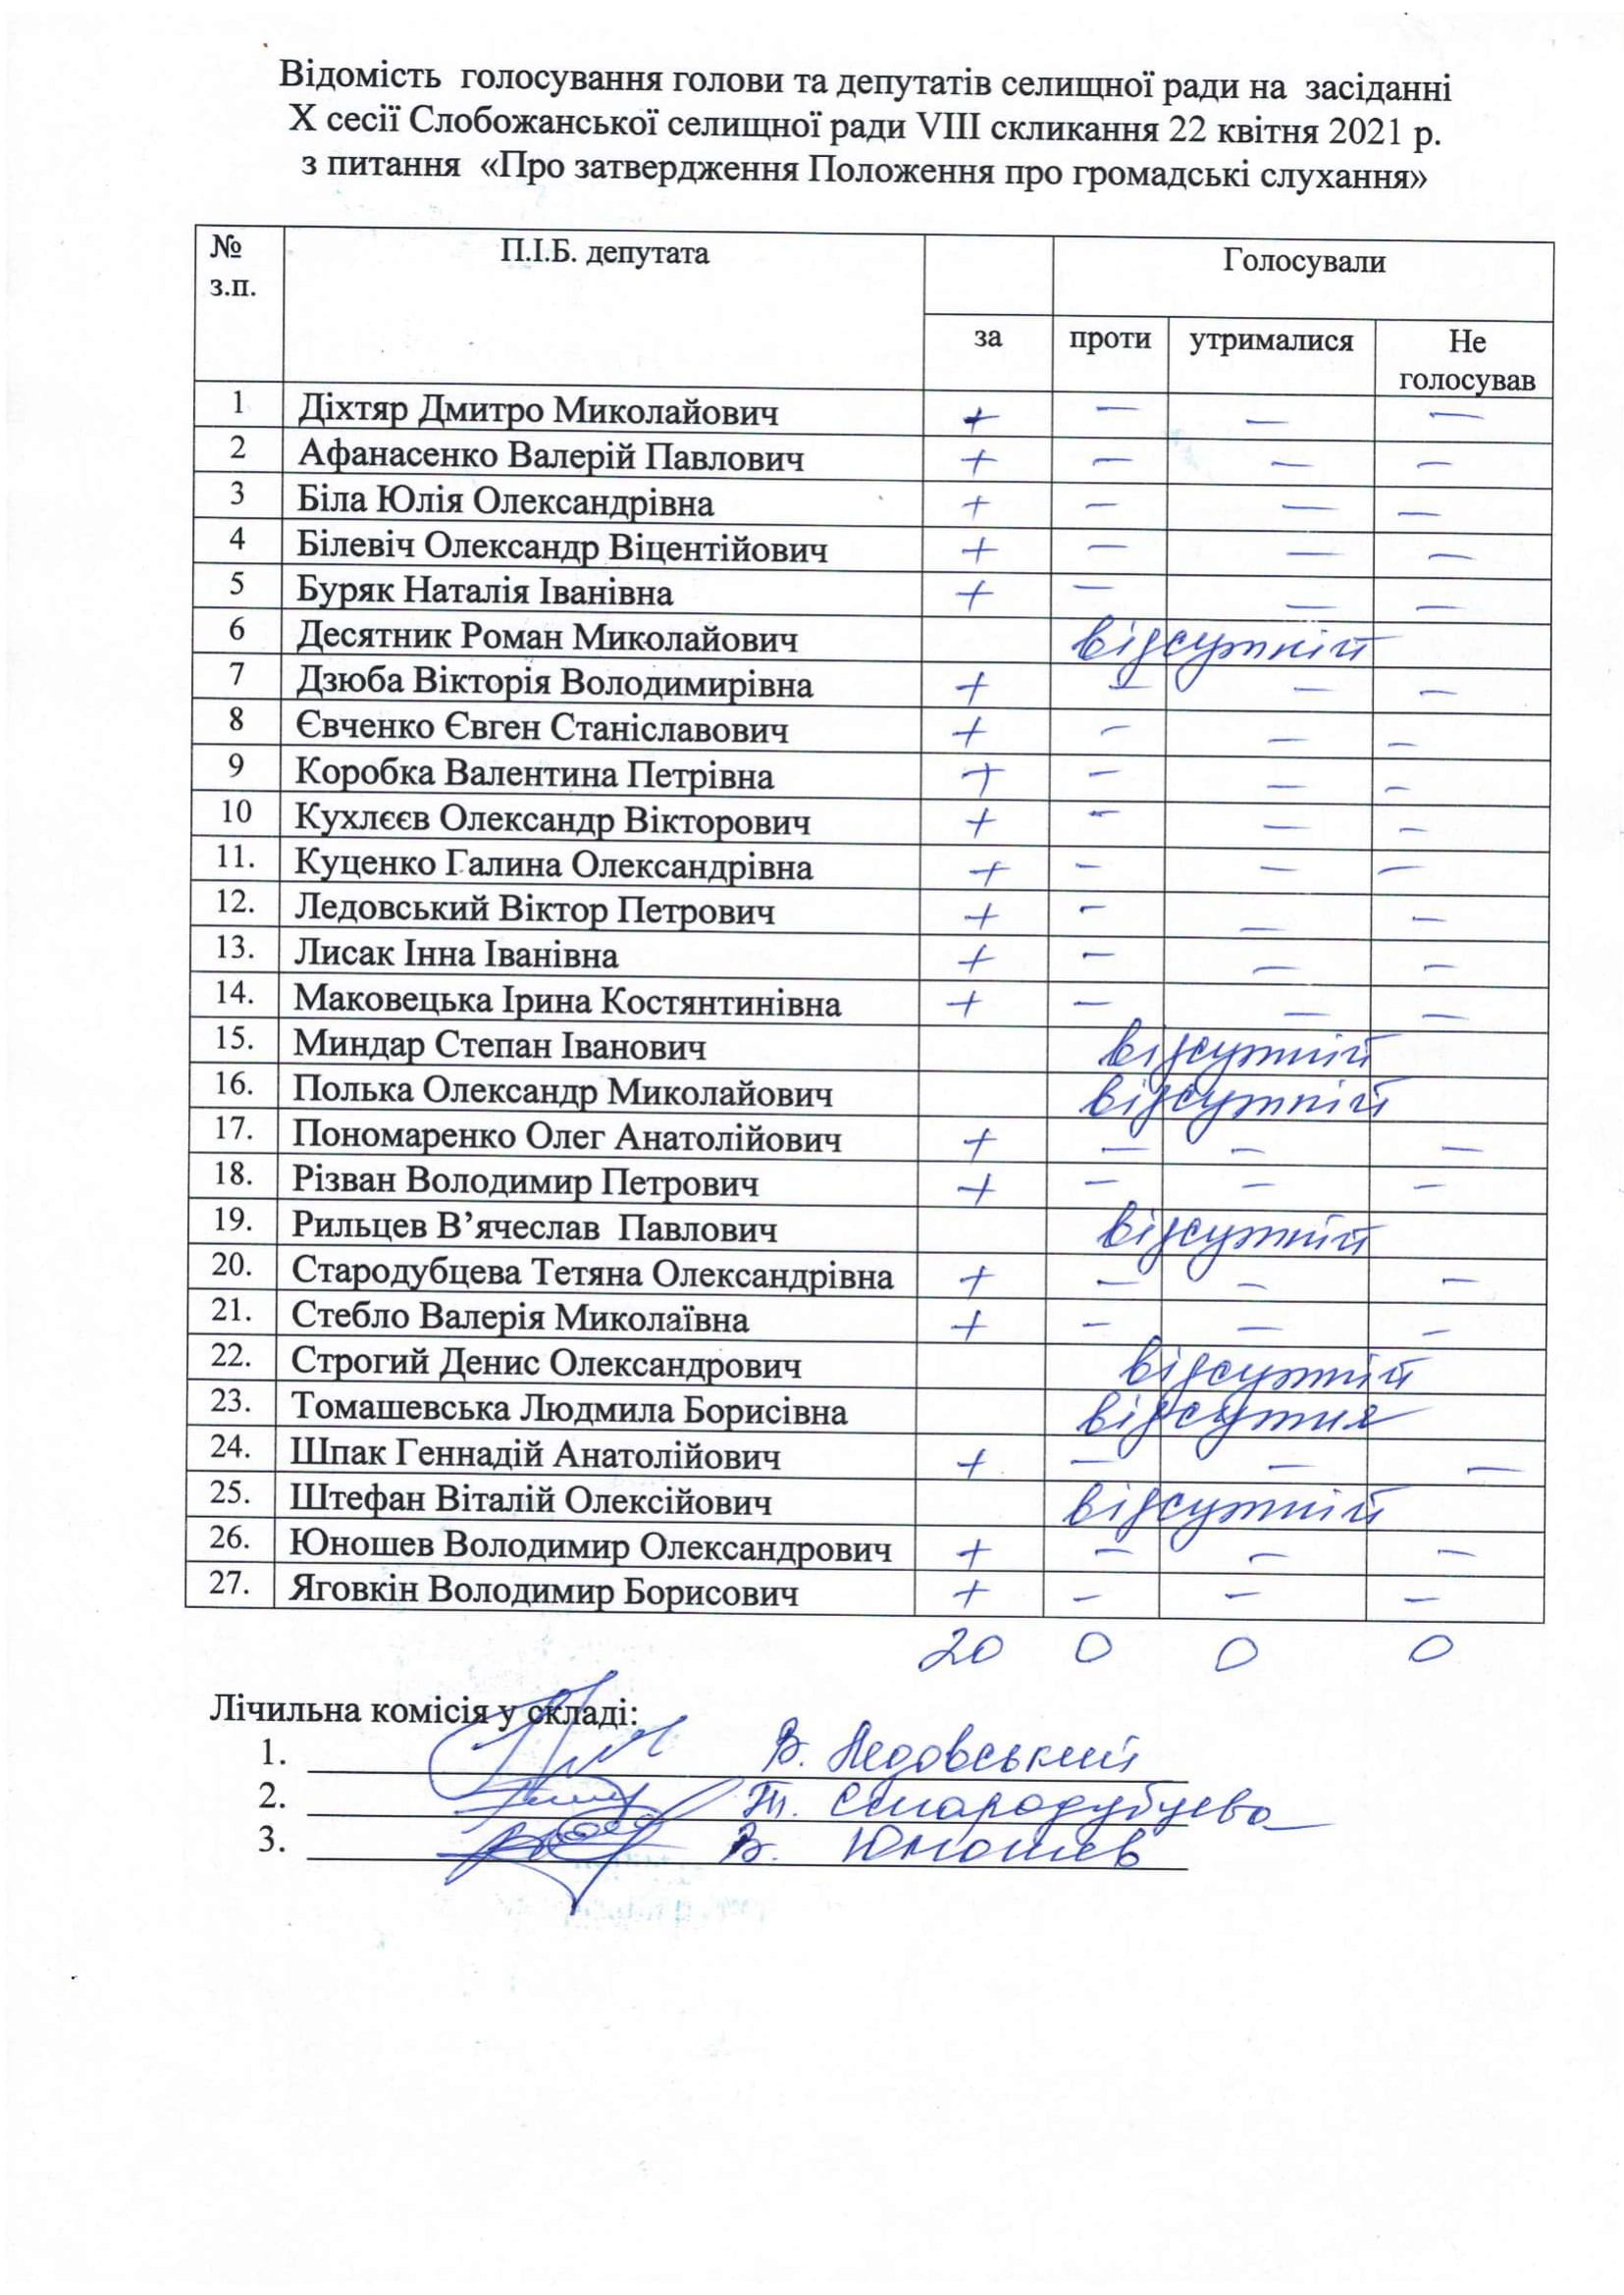 Відомість голосування голови та депутатів селищної ради на засіданні
Х сесії Слобожанської селищної ради VIII скликання 22 квітня 2021 р.
з питання «Про затвердження Положення про громадські слухання»
№ з.п. П.І.Б. депутата Голосували
за проти утрималися Не голосував
1 Діхтяр Дмитро Миколайович + — — —
2 Афанасенко Валерій Павлович + — — —
3 Біла Юлія Олександрівна + — — —
4 Білевіч Олександр Віцентійович + — — —
5 Буряк Наталія Іванівна + — — —
6 Десятник Роман Миколайович відсутній
7 Дзюба Вікторія Володимирівна + — — —
8 Євченко Євген Станіславович + — — —
9 Коробка Валентина Петрівна + — — —
10 Кухлєєв Олександр Вікторович + — — —
11. Куценко Галина Олександрівна + — — —
12. Ледовський Віктор Петрович + — — —
13. Лисак Інна Іванівна + — — —
14. Маковецька Ірина Костянтинівна + — — —
15. Миндар Степан Іванович відсутній
16. Полька Олександр Миколайович відсутній
17. Пономаренко Олег Анатолійович + — — —
18. Різван Володимир Петрович + — — —
19. Рильцев В’ячеслав Павлович відсутній
20. Стародубцева Тетяна Олександрівна + — — —
21. Стебло Валерія Миколаївна + — — —
22. Строгий Денис Олександрович відсутній
23. Томашевська Людмила Борисівна відсутня
24. Шпак Геннадій Анатолійович + — — —
25. Штефан Віталій Олексійович відсутній
26. Юношев Володимир Олександрович + — — —
27. Яговкін Володимир Борисович + — — —
20 0 0 0
Лічильна комісія у складі:
1. В. Ледовський
2. Т. Стародубцева
3. В. Юношев